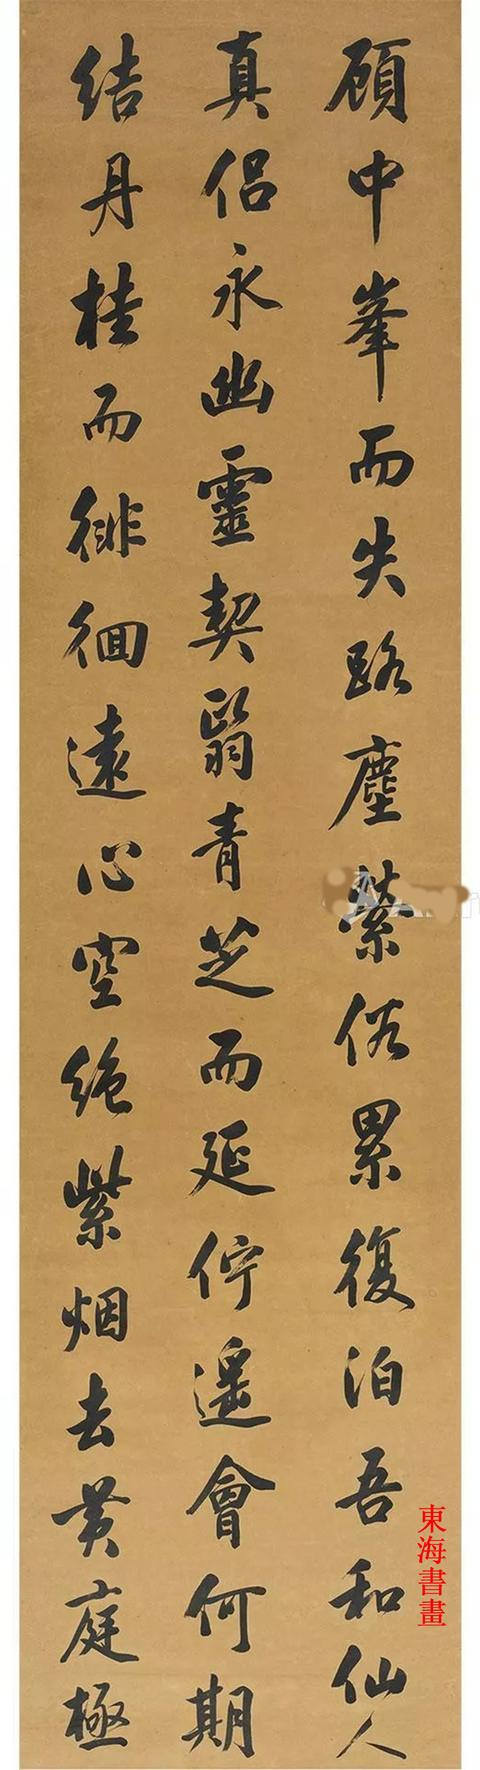 顧中峯而失路塵縈俗累復泊吾和仙人
真侶永幽靈契翳青芝而延佇遥會何期
結丹桂而徘徊遠心空絶紫烟去黄庭極
東海書畫